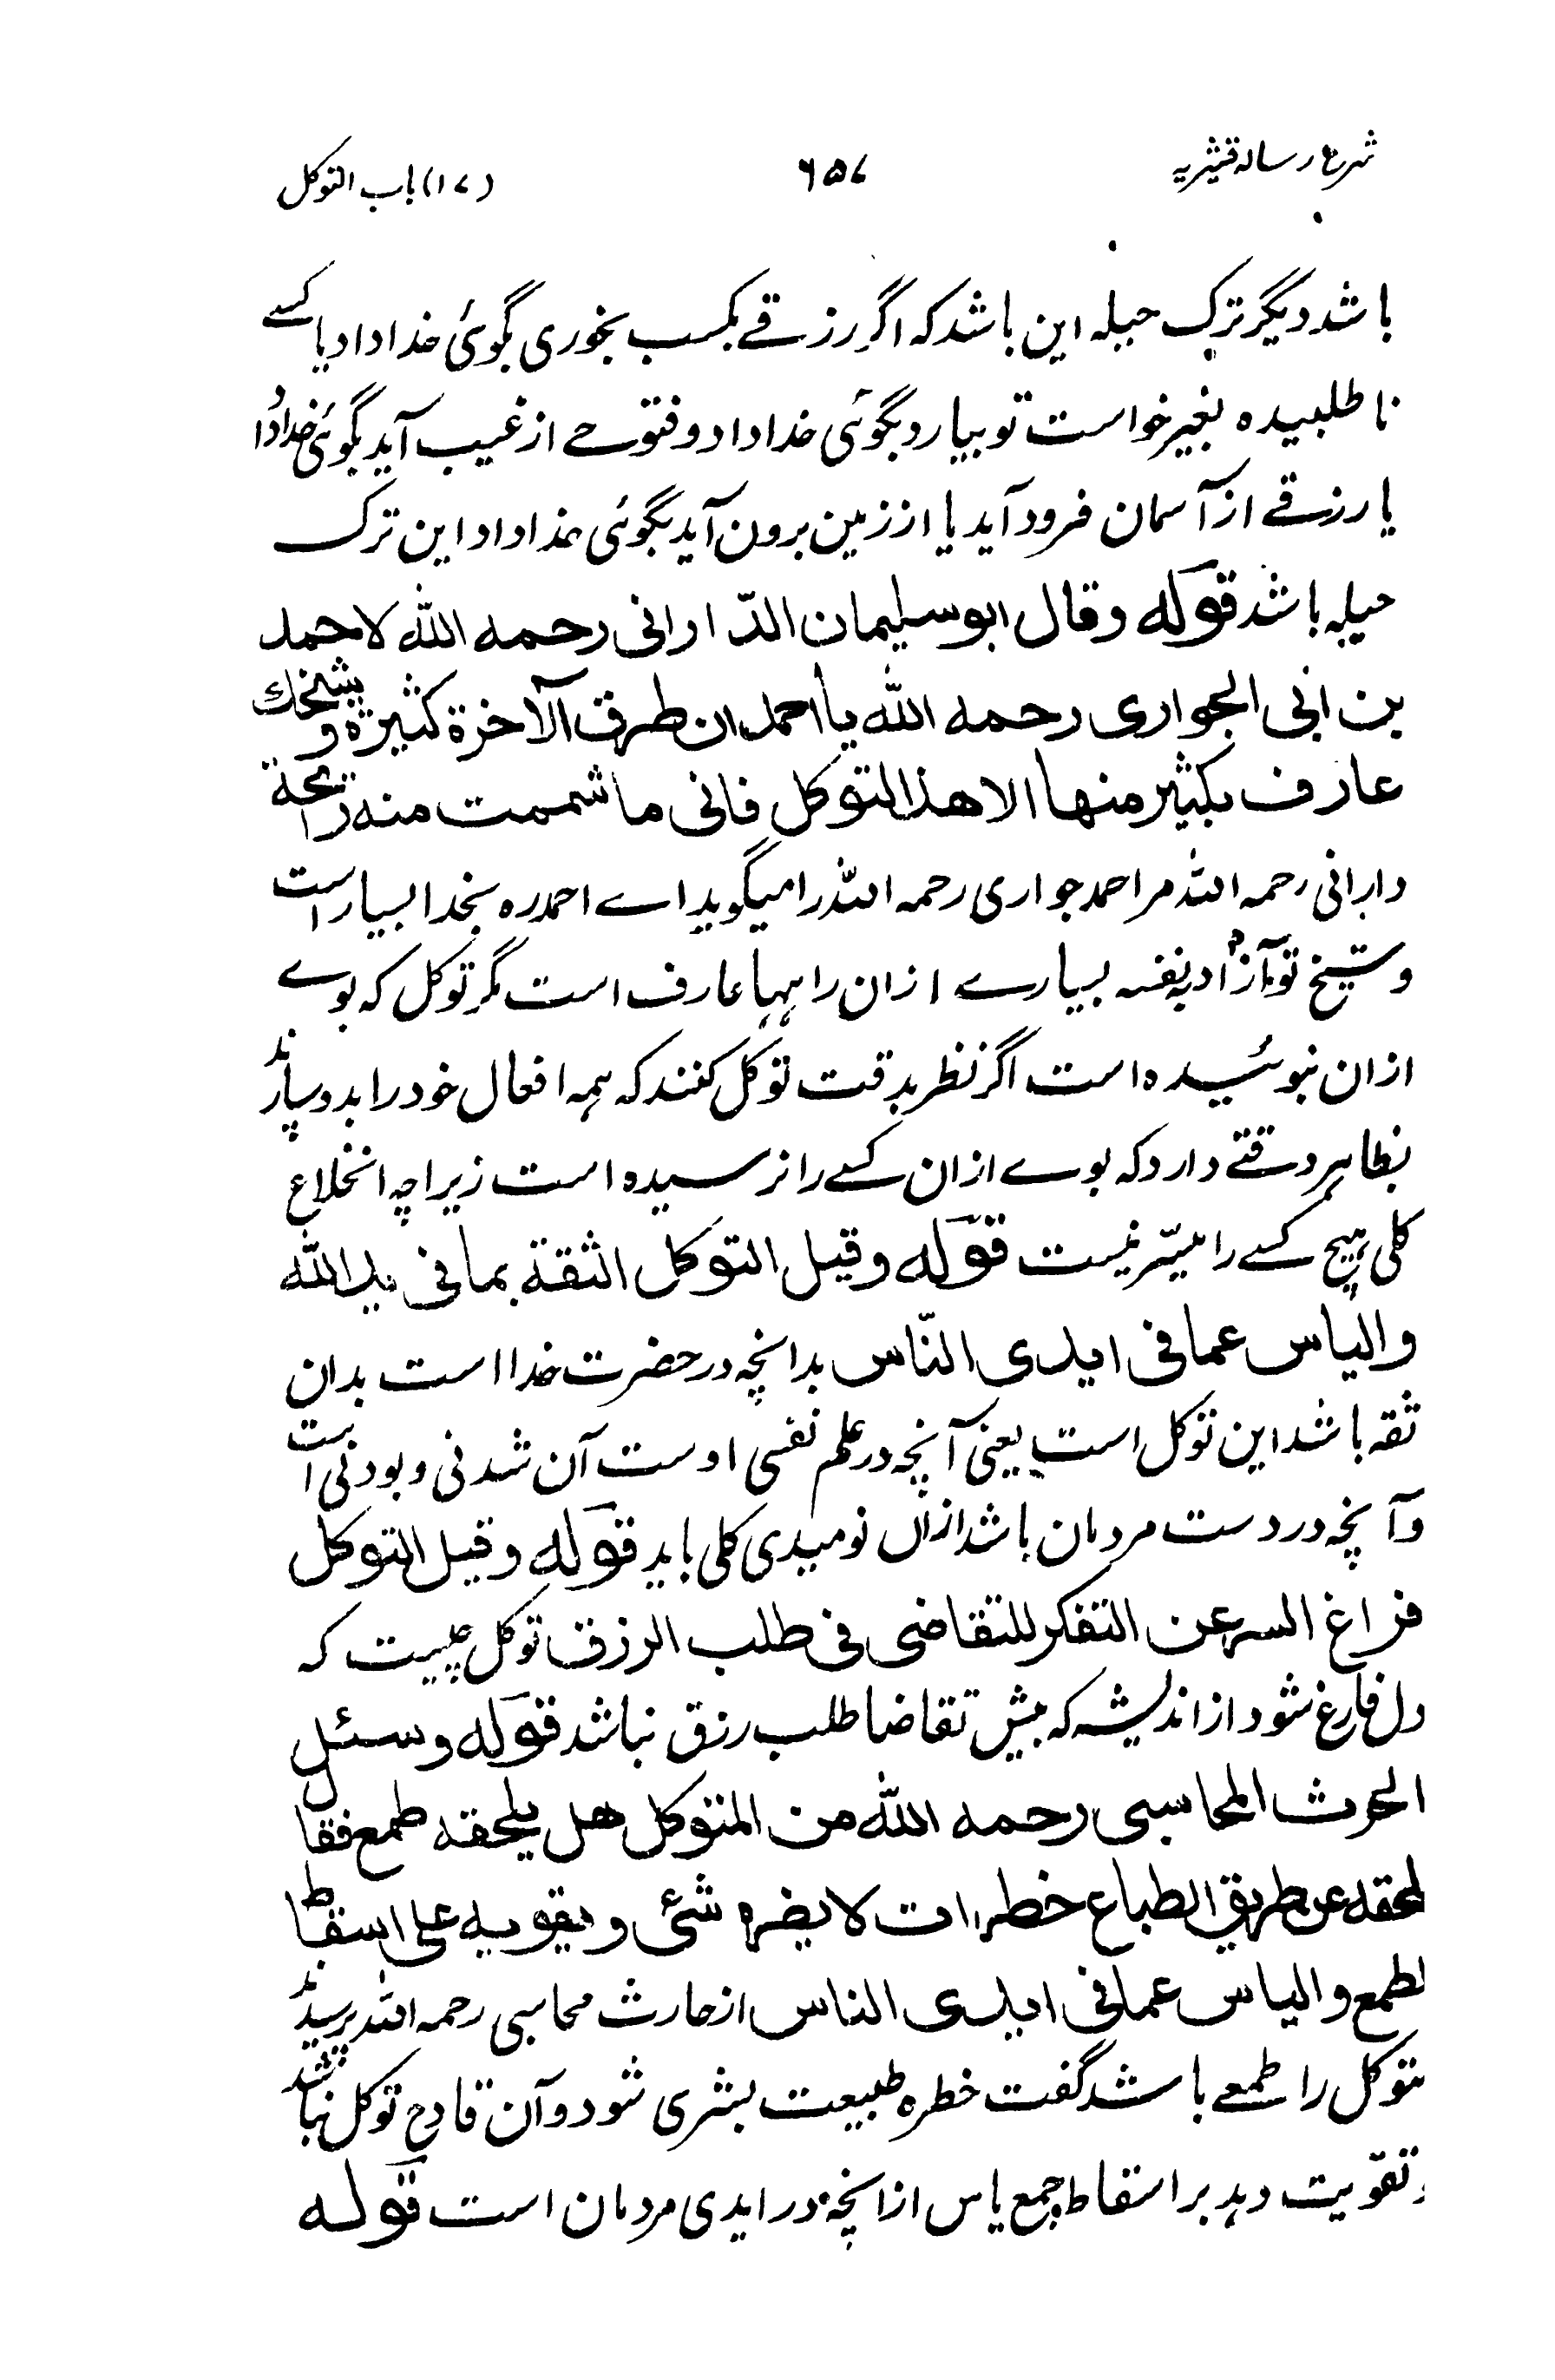 شرح رسالہ قشیریہ
۶۵۷
(۱۷) باب التوکل
باشد دیگر ترک حیلہ این باشد کہ اگر رزقے بکسب بخوری بگوئی خدا داد یا کسے
نا طلبیدہ بغیر خواست تو بیارد بگوئی خدا داد و فتوحے از غیب آید بگوئی خدا داد
یا رزقے از آسمان فرود آید یا از زمین برون آید بگوئی خدا داد این ترک
حیلہ باشد قولہ وقال ابوسلیمان الدّارانی رحمہ اللہ لاحمد
بن ابی الجواری رحمہ اللہ یا احمد ان طرق الآخرۃ کثیرۃ وشیخک
عارف بکثیر منھا الا ھذا التوکل فانی ما شممت منہ رائحۃ
دارانی رحمہ اللہ مر احمد جواری رحمہ اللہ را میگوید اے احمد رہ بخدا بسیار است
وشیخ تو بہ بسیارے ازان راہہا عارف است مگر توکل کہ بوے
ازان نبوئیدہ است اگر نظر بدقت توکل کنند کہ ہمہ افعال خود را بدو سپارند
بظاہر دقتے دارد کہ بوے ازان کسے را نرسیدہ است زیراچہ انخلاع
کلی ہیچ کسے را میسّر نیست قولہ وقیل التوکل الثقۃ بما فی ید اللہ
والیاس عما فی ایدی النّاس بدانچہ در حضرت خدا است بدان
ثقہ باشد این توکل است یعنی آنچہ در علم نفسی اوست آن شدنی و بودنی است
وآنچہ در دست مردمان باشد ازان نومیدی کلی باید قولہ وقیل التوکل
فراغ السر عن التفکر للتقاضی فی طلب الرزق توکل چیست کہ
دل فارغ شود از اندیشہ کہ بیش تقاضا طلب رزق نباشد قولہ وسئل
الحرث المحاسبی رحمہ اللہ من المتوکل ھل یلحقہ طمع فقال
لحقہ عن طریق الطباع خطرات لا یضرہ شئی ویقویہ علی اسقاط
لطمع والیاس عما فی ایدی الناس از حارث محاسبی رحمہ اللہ پرسیدند
متوکل را طمعے باشد گفت خطرہ طبیعت بشری شود وآن قادح توکل نباشد
و تقویت دہد بر اسقاط جمع یاس ازانچہ در ایدی مردمان است قولہ